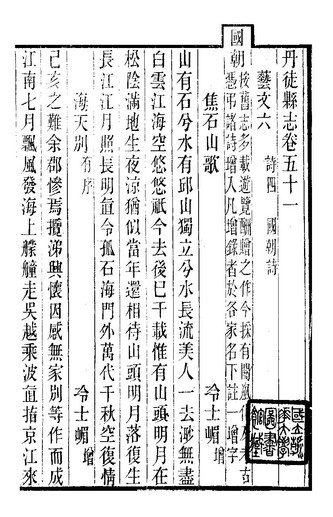 丹徒縣志卷五十一
藝文六
詩四 國朝詩
國朝按舊志多載遊覽酬贈之作今採有關風
憑弔諸詩增入凡增錄者於各家名下註一增字
焦石山歌 冷士嵋
山有石兮水有邱山獨立兮水長流美人一去渺無盡
白雲江海空悠悠祇今去後已千載惟有山頭明月在
松陰滿地生夜涼猶似當年還相待山頭明月落復生
長江江月照長明直令孤石海門外萬代千秋空復情
海天別 有序 冷士嵋 增
己亥之難余郡慘焉攬涕興懷因感無家別等作而成
江南七月飄風發海上艨艟走吳越乘波直指京江來